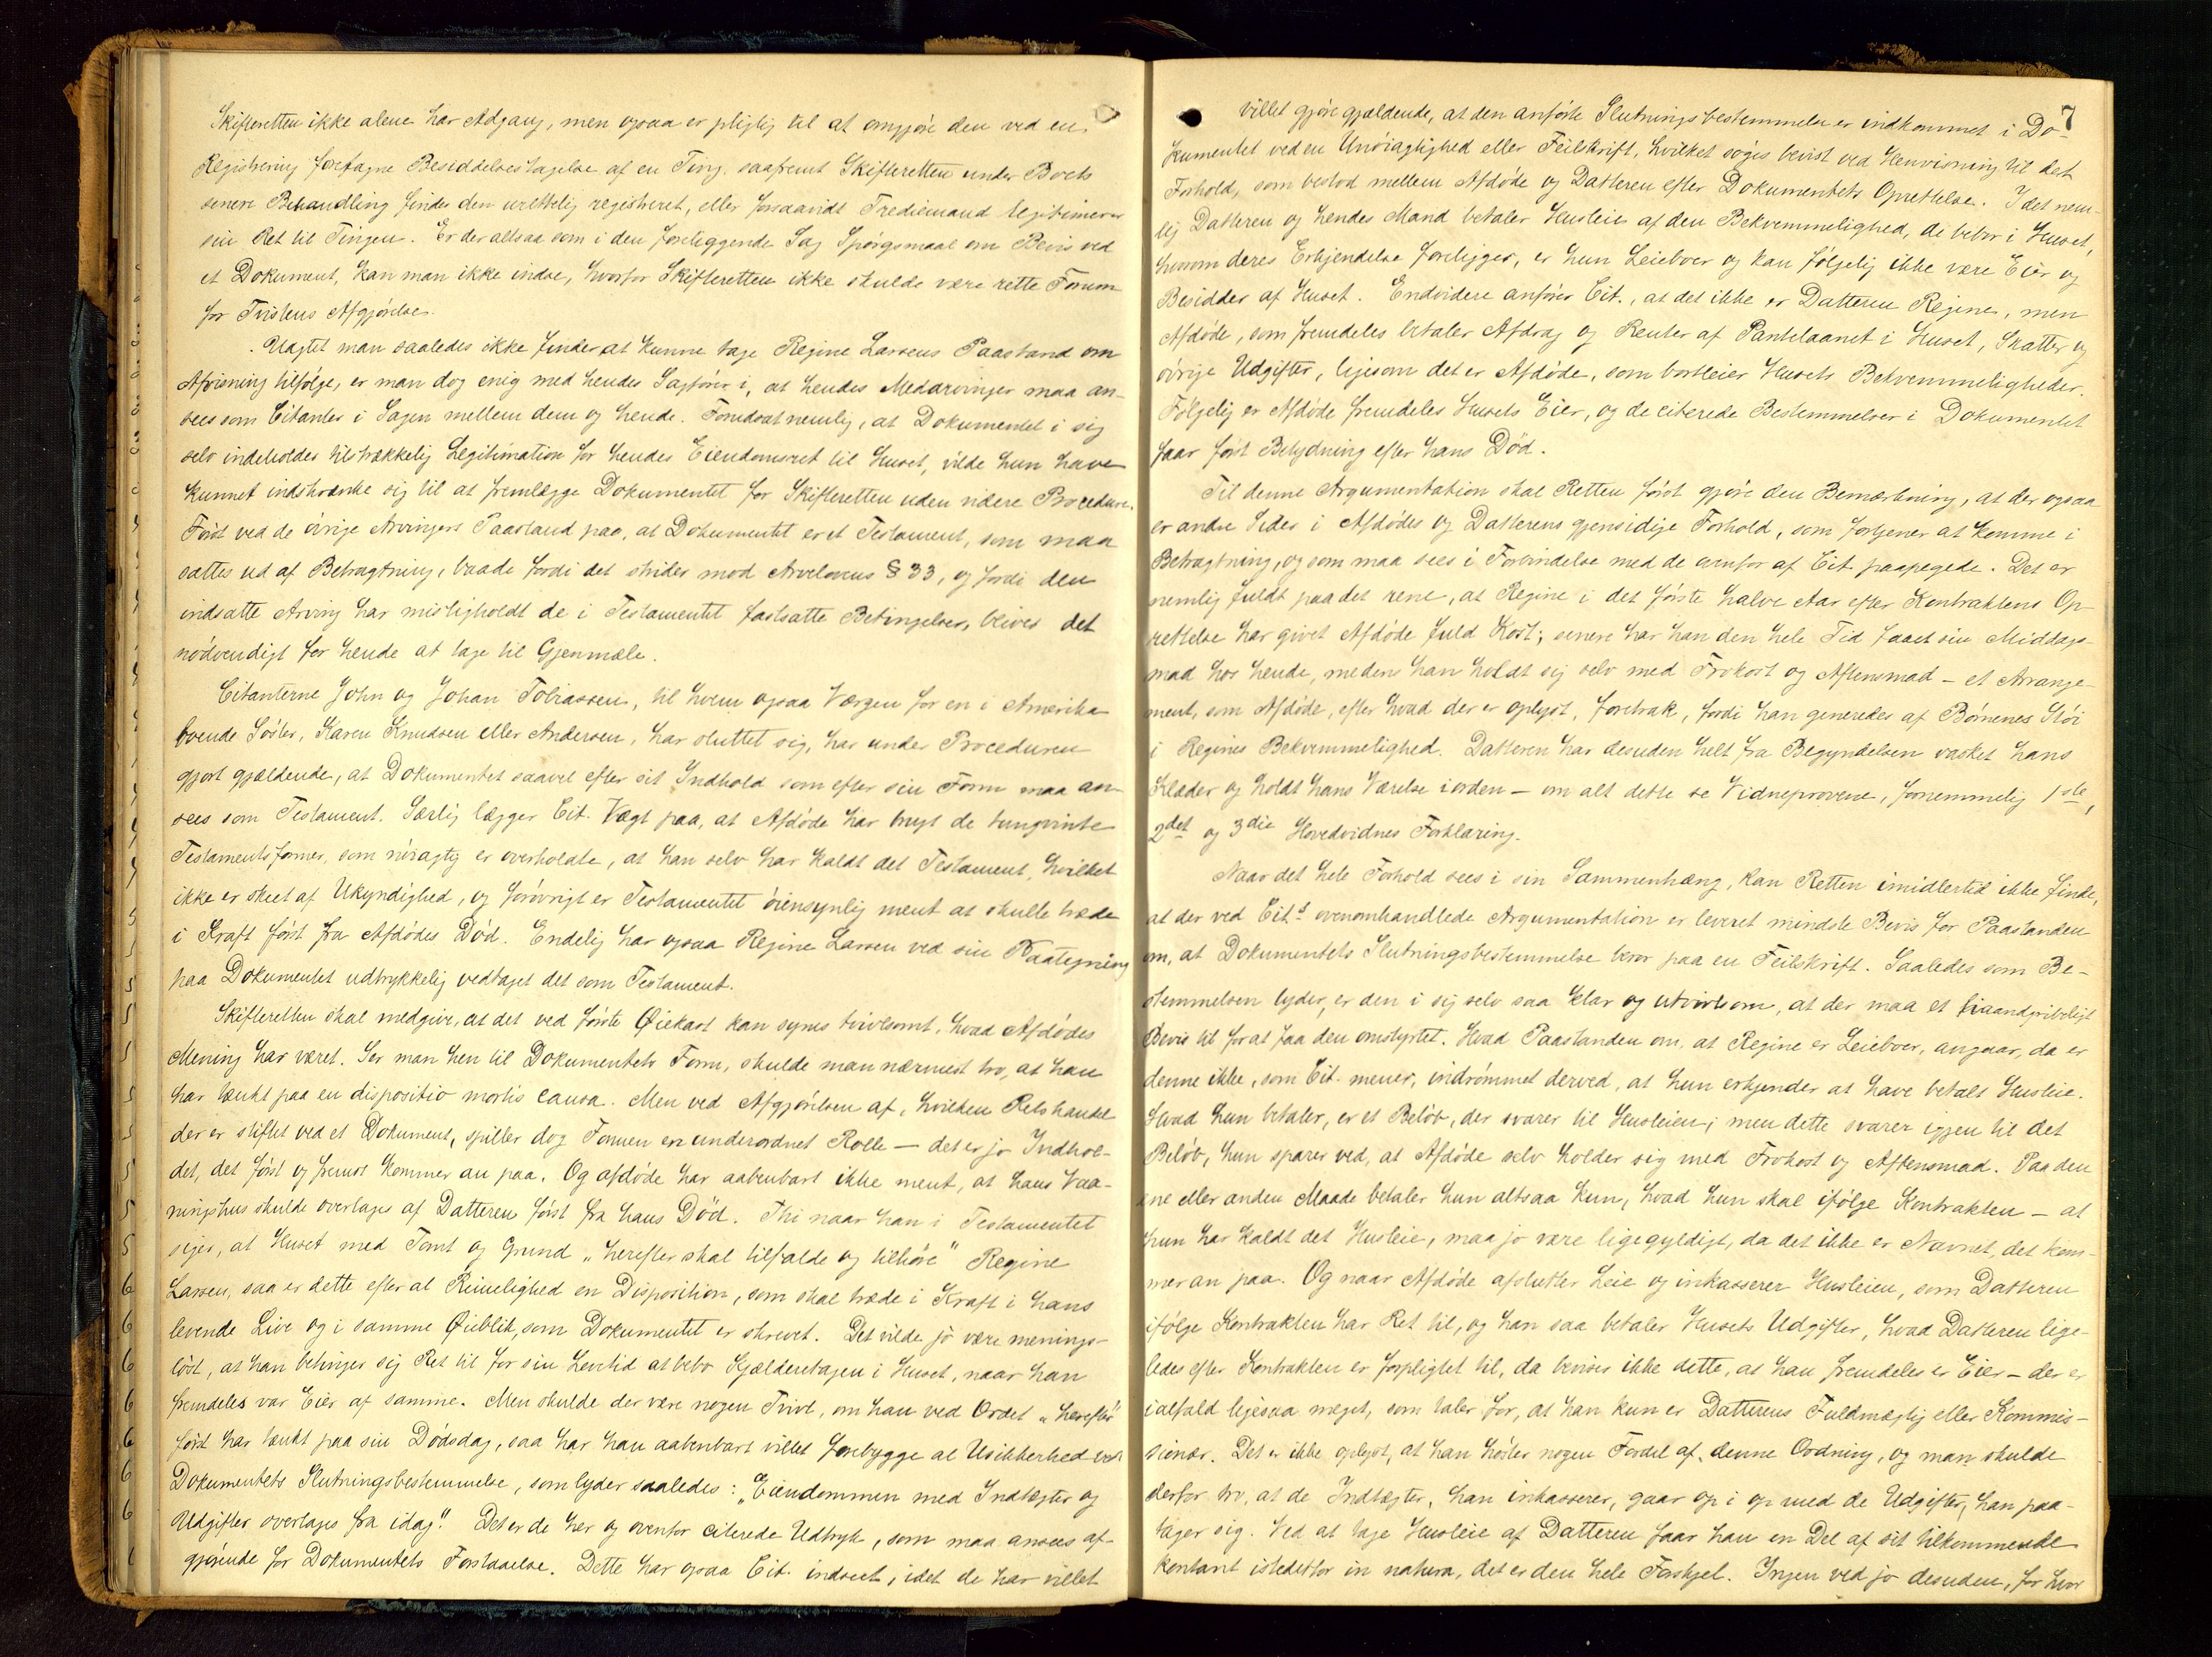 Skifteretten ikke alene har Adgang, men ogsaa er pligtig til at omgjøre den ved en
Registrering foretagne Besiddelsestagelse af en Ting, saafremt Skifteretten under Boets
senere Behandling finder den urettelig registreret, eller forsaavidt Trediemand legitimerer
sin Ret til Tingen. Er der altsaa som i den foreliggende Sag Spørgsmaal om Bevis ved
et Dokument, kan man ikke indse, hvorfor Skifteretten ikke skulde være rette Forum
for Tvistens Afgjørelse.
Uagtet man saaledes ikke finder at kunne tage Regine Larsens Paastand om
Afvisning tilfølge, er man dog enig med hendes Sagfører i, at hendes Medarvinger maa an-
sees som Citanter i Sagen mellem dem og hende. Forudsat nemlig, at Dokumentet i sig
selv indeholder tilstrækkelig Legitimation for hendes Eiendomsret til Huset, vilde hun have
kunnet indskrænke sig til at fremlægge Dokumentet for Skifteretten uden videre Procedure.
Først ved de øvrige Arvingers Paastand paa, at Dokumentet er et Testament, som maa
sættes ud af Betragtning, baade fordi det strider mod Arvelovens § 33, og fordi den
indsatte Arving har misligholdt de i Testamentet fastsatte Betingelser, blives det
nødvendigt for hende at tage til Gjenmæle.
Citanterne John og Johan Tobiassen, til hvem ogsaa Værgen for en i Amerika
boende Søster, Karen Knudsen eller Andersen, har sluttet sig, har under Proceduren
gjort gjældende, at Dokumentet saavel efter sit Indhold som efter sin Form maa an-
sees som Testament. Særlig lægger Cit. Vægt paa, at Afdøde har brugt de tungvinte
Testamentsformer, som nøiagtig er overholdte, at han selv har kaldt det Testament, hvilket
ikke er skeet af Ukyndighed, og forøvrigt er Testamentet øiensynlig ment at skulle træde
i Kraft først fra Afdødes Død. Endelig har ogsaa Regine Larsen ved sin Paategning
paa Dokumentet udtrykkelig vedtaget det som Testament.
Skifteretten skal medgive, at det ved første Øiekast kan synes tvivlsomt, hvad Afdødes
Mening har været. Ser man hen til Dokumentets Form, skulde man nærmest tro, at han
har tænkt paa en dispositio mortis causa. Men ved Afgjørelsen af, hvilken Retshandel
der er stiftet ved et Dokument, spiller dog Formen en underordnet Rolle — det er jo Indhol-
det, det først og fremst kommer an paa. Og afdøde har aabenbart ikke ment, at hans Vaa-
ningshus skulde overtages af Datteren først fra hans Død. Thi naar han i Testamentet
siger, at Huset med Tomt og Grund „herefter skal tilfalde og tilhøre" Regine
Larsen, saa er dette efter al Rimelighed en Disposition, som skal træde i Kraft i hans
levende Live og i samme Øieblik, som Dokumentet er skrevet. Det vilde jo være menings-
løst, at han betinger sig Ret til for sin Levetid at bebo Kjælderetagen i Huset, naar han
fremdeles var Eier af samme. Men skulde der være nogen Tvivl, om han ved Ordet „herefter"
først har tænkt paa sin Dødsdag, saa har han aabenbart villet forebygge al Usikkerhed ved
Dokumentets Slutningsbestemmelse, som lyder saaledes: „Eiendommen med Indtægter og
Udgifter overtages fra idag". Det er de her og ovenfor citerede Udtryk, som maa ansees af-
gjørende for Dokumentets Forstaaelse. Dette har ogsaa Cit. indseet, idet de har villet
7
villet gjøre gjældende, at den anførte Slutningsbestemmelse er indkommet i Do-
kumentet ved en Unøiagtighed eller Feilskrift, hvilket søges bevist ved Henvisning til det
Forhold, som bestod mellem Afdøde og Datteren efter Dokumentets Oprettelse. Idet nem-
lig Datteren og hendes Mand betaler Husleie af den Bekvemmelighed, de bebor i Huset,
hvorom deres Erkjendelse foreligger, er hun Leieboer og kan følgelig ikke være Eier og
Besidder af Huset. Endvidere anfører Cit., at det ikke er Datteren Regine, men
Afdøde, som fremdeles betaler Afdrag og Renter af Pantelaanet i Huset, Skatter og
øvrige Udgifter, ligesom det er Afdøde, som bortleier Husets Bekvemmeligheder.
Følgelig er Afdøde fremdeles Husets Eier, og de citerede Bestemmelser i Dokumentet
faar først Betydning efter hans Død.
Til denne Argumentation skal Retten først gjøre den Bemærkning, at der ogsaa
er andre Sider i Afdødes og Datterens gjensidige Forhold, som fortjener at komme i
Betragtning, og som maa sees i Forbindelse med de ovenfor af Cit. paapegede. Det er
nemlig fuldt paa det rene, at Regine i det første halve Aar efter Kontraktens Op-
rettelse har givet Afdøde fuld Kost; senere har han den hele Tid faaet sin Middags-
mad hos hende, medens han holdt sig selv med Frokost og Aftensmad — et Arrange-
ment, som Afdøde, efter hvad der er oplyst, foretrak, fordi han generedes af Børnenes Støi
i Regines Bekvemmelighed. Datteren har desuden helt fra Begyndelsen vasket hans
Klæder og holdt hans Værelse i orden — om alt dette se Vidneprovene, fornemmelig 1ste,
2det og 3die Hovedvidnes Forklaring.
Naar det hele Forhold sees i sin Sammenhæng, kan Retten imidlertid ikke finde,
at der ved Cits ovenomhandlede Argumentation er leveret mindste Bevis for Paastanden
om, at Dokumentets Slutningsbestemmelse beror paa en Feilskrift. Saaledes som Be-
stemmelsen lyder, er den i sig selv saa klar og utvivlsom, at der maa et haandgribeligt
Bevis til for at faa den omstyrtet. Hvad Paastanden om, at Regine er Leieboer, angaar, da er
denne ikke, som Cit. mener, indrømmet derved, at hun erkjender at have betalt Husleie.
Hvad hun betaler, er et Beløb, der svarer til Husleien; men dette svarer igjen til det
Beløb, hun sparer ved, at Afdøde selv holder sig med Frokost og Aftensmad. Paa den
ene eller anden Maade betaler hun altsaa kun, hvad hun skal ifølge Kontrakten — at
hun har kaldt det Husleie, maa jo være ligegyldigt, da det ikke er Navnet, det kom-
mer an paa. Og naar Afdøde afslutter Leie og inkasserer Husleien, som Datteren
ifølge Kontrakten har Ret til, og han saa betaler Husets Udgifter, hvad Datteren lige-
ledes efter Kontrakten er forpligtet til, da beviser ikke dette, at han fremdeles er Eier — der er
ialfald ligesaa meget, som taler for, at han kun er Datterens Fuldmægtig eller Kommis-
sionær. Det er ikke oplyst, at han høster nogen Fordel af denne Ordning, og man skulde
derfor tro, at de Indtægter, han inkasserer, gaar op i op med de Udgifter, han paa-
tager sig. Ved at tage Husleie af Datteren faar han en Del af sit tilkommende
kontant istedetfor in natura, det er den hele Forskjel. Ingen ved jo desuden, for hvor